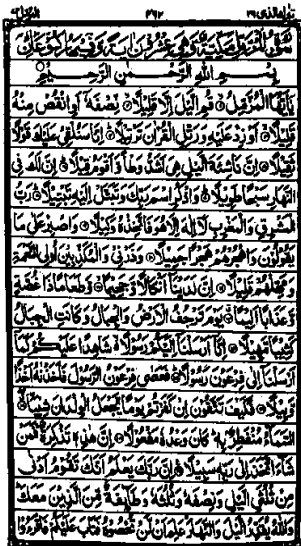 سورة المزمل مكية وهي عشرون اية وفيها ركوعان
بسم الله الرحمن الرحيم
يايها المزمل قم اليل الا قليلا نصفه او انقص منه
قليلا او زد عليه ورتل القران ترتيلا انا سنلقي عليك قولا
ثقيلا ان ناشئة اليل هي اشد وطا واقوم قيلا ان لك في
النهار سبحا طويلا واذكر اسم ربك وتبتل اليه تبتيلا رب
المشرق والمغرب لا اله الا هو فاتخذه وكيلا واصبر على ما
يقولون واهجرهم هجرا جميلا وذرني والمكذبين اولي النعمة
ومهلهم قليلا ان لدينا انكالا وجحيما وطعاما ذا غصة
وعذابا اليما يوم ترجف الارض والجبال وكانت الجبال
كثيبا مهيلا انا ارسلنا اليكم رسولا شاهدا عليكم كما
ارسلنا الى فرعون رسولا فعصى فرعون الرسول فاخذنه اخذا
وبيلا فكيف تتقون ان كفرتم يوما يجعل الولدان شيبا
السماء منفطر به كان وعده مفعولا ان هذه تذكرة فمن
شاء اتخذ الى ربه سبيلا ان ربك يعلم انك تقوم ادنى
من ثلثي اليل ونصفه وثلثه وطائفة من الذين معك
والله يقدر اليل والنهار علم ان لن تحصوه فتاب عليكم فاقرءوا